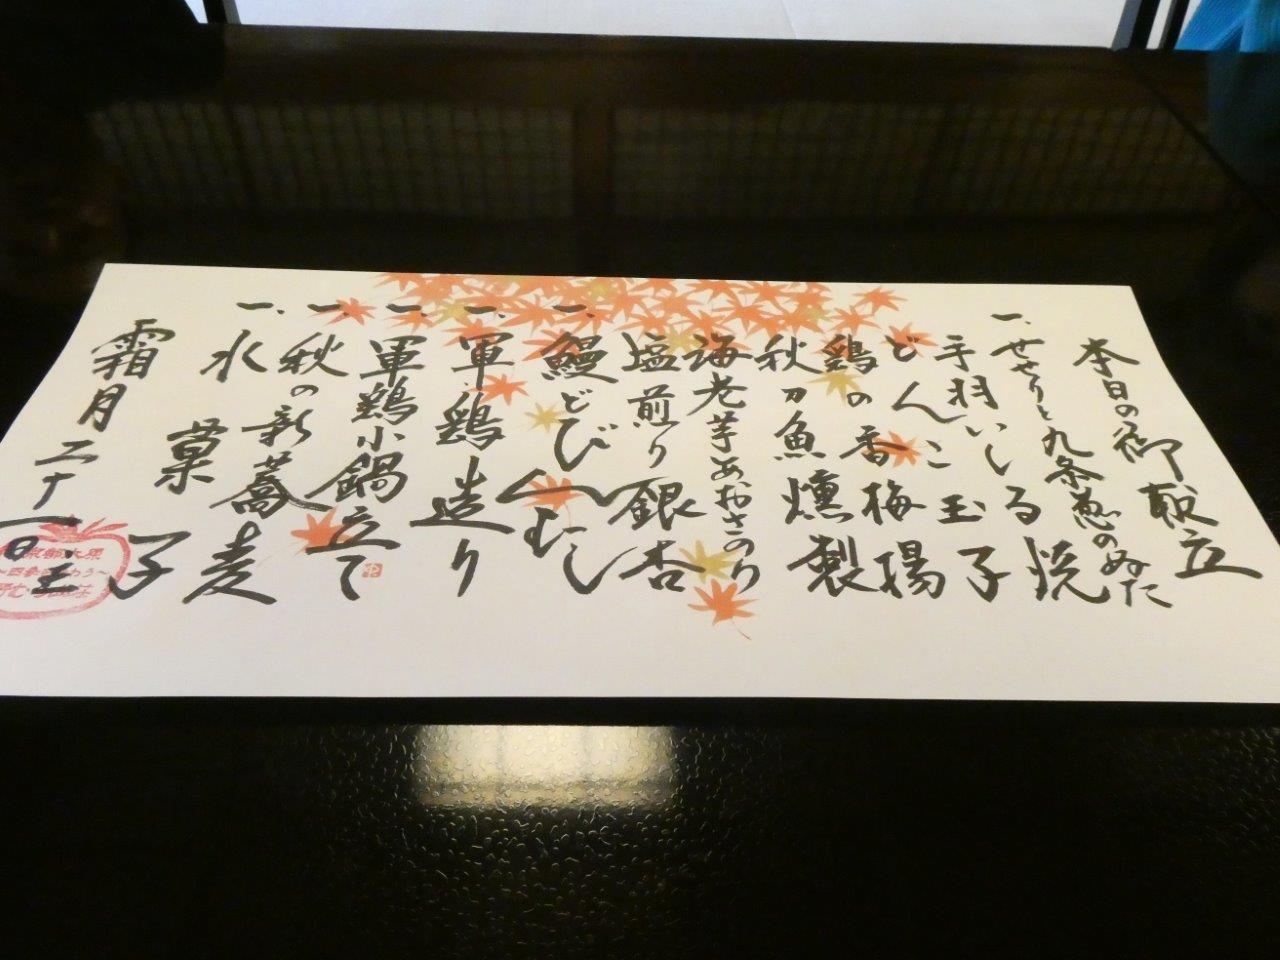 本日の御献立
一、せせりと九条葱のぬた
手羽いしる焼
どんこ玉子
鶏の香梅揚
秋刀魚燻製
海老芋あおさのり
塩煎り銀杏
一、鰻どびんむし
一、軍鶏造り
一、軍鶏小鍋立て
一、秋の新蕎麦
一、水菓子
霜月二十一日